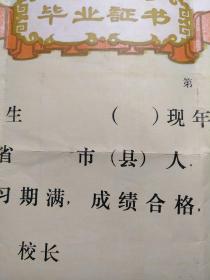 毕业证书
第
生 ( )现年
省 市(县)人.
习期满,成绩合格,
校长